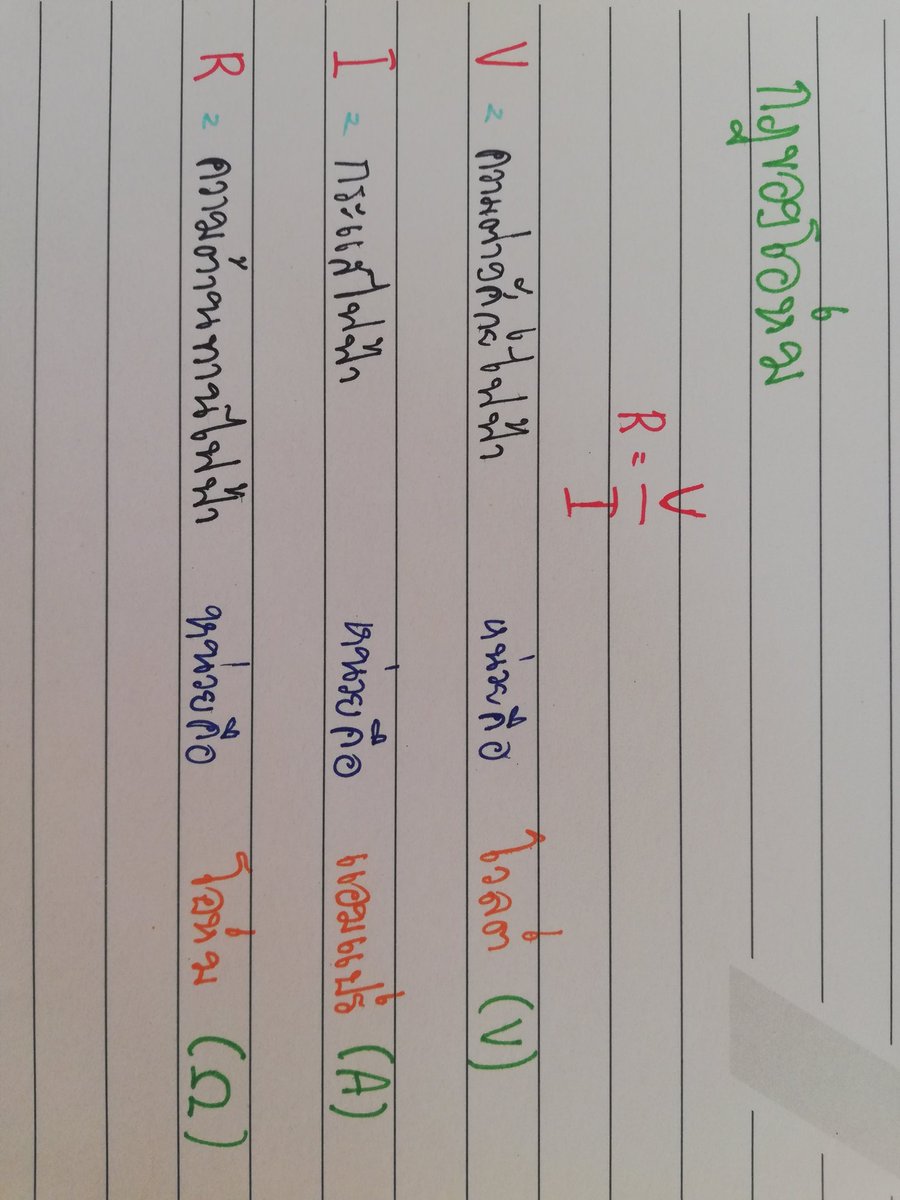 กฎของโอห์ม
R = V/I
V = ความต่างศักย์ไฟฟ้า หน่วยคือ โวลต์ (V)
I = กระแสไฟฟ้า หน่วยคือ แอมแปร์ (A)
R = ความต้านทานไฟฟ้า หน่วยคือ โอห์ม (Ω)